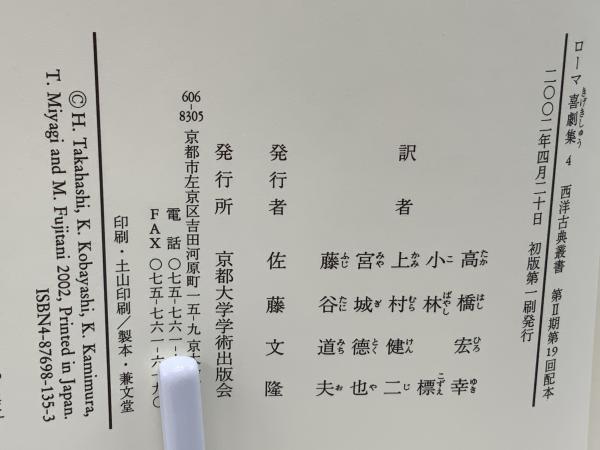 ローマ喜劇集 4 西洋古典叢書 第Ⅱ期第19回配本
きげきしゅう
二〇〇二年四月二十日 初版第一刷発行
訳者
高橋宏幸
たかはしひろゆき
小林標
こばやしこずえ
上村健二
かみむらけんじ
宮城德也
みやぎとくや
藤谷道夫
ふじたにみちお
発行者 佐藤文隆
発行所 京都大学学術出版会
606-8305 京都市左京区吉田河原町一五-九 京
電話 〇七五-七六一-
FAX 〇七五-七六一-
印刷・土山印刷/製本・兼文堂
© H. Takahashi, K. Kobayashi, K. Kamimura,
T. Miyagi and M. Fujitani 2002, Printed in Japan.
ISBN4-87698-135-3